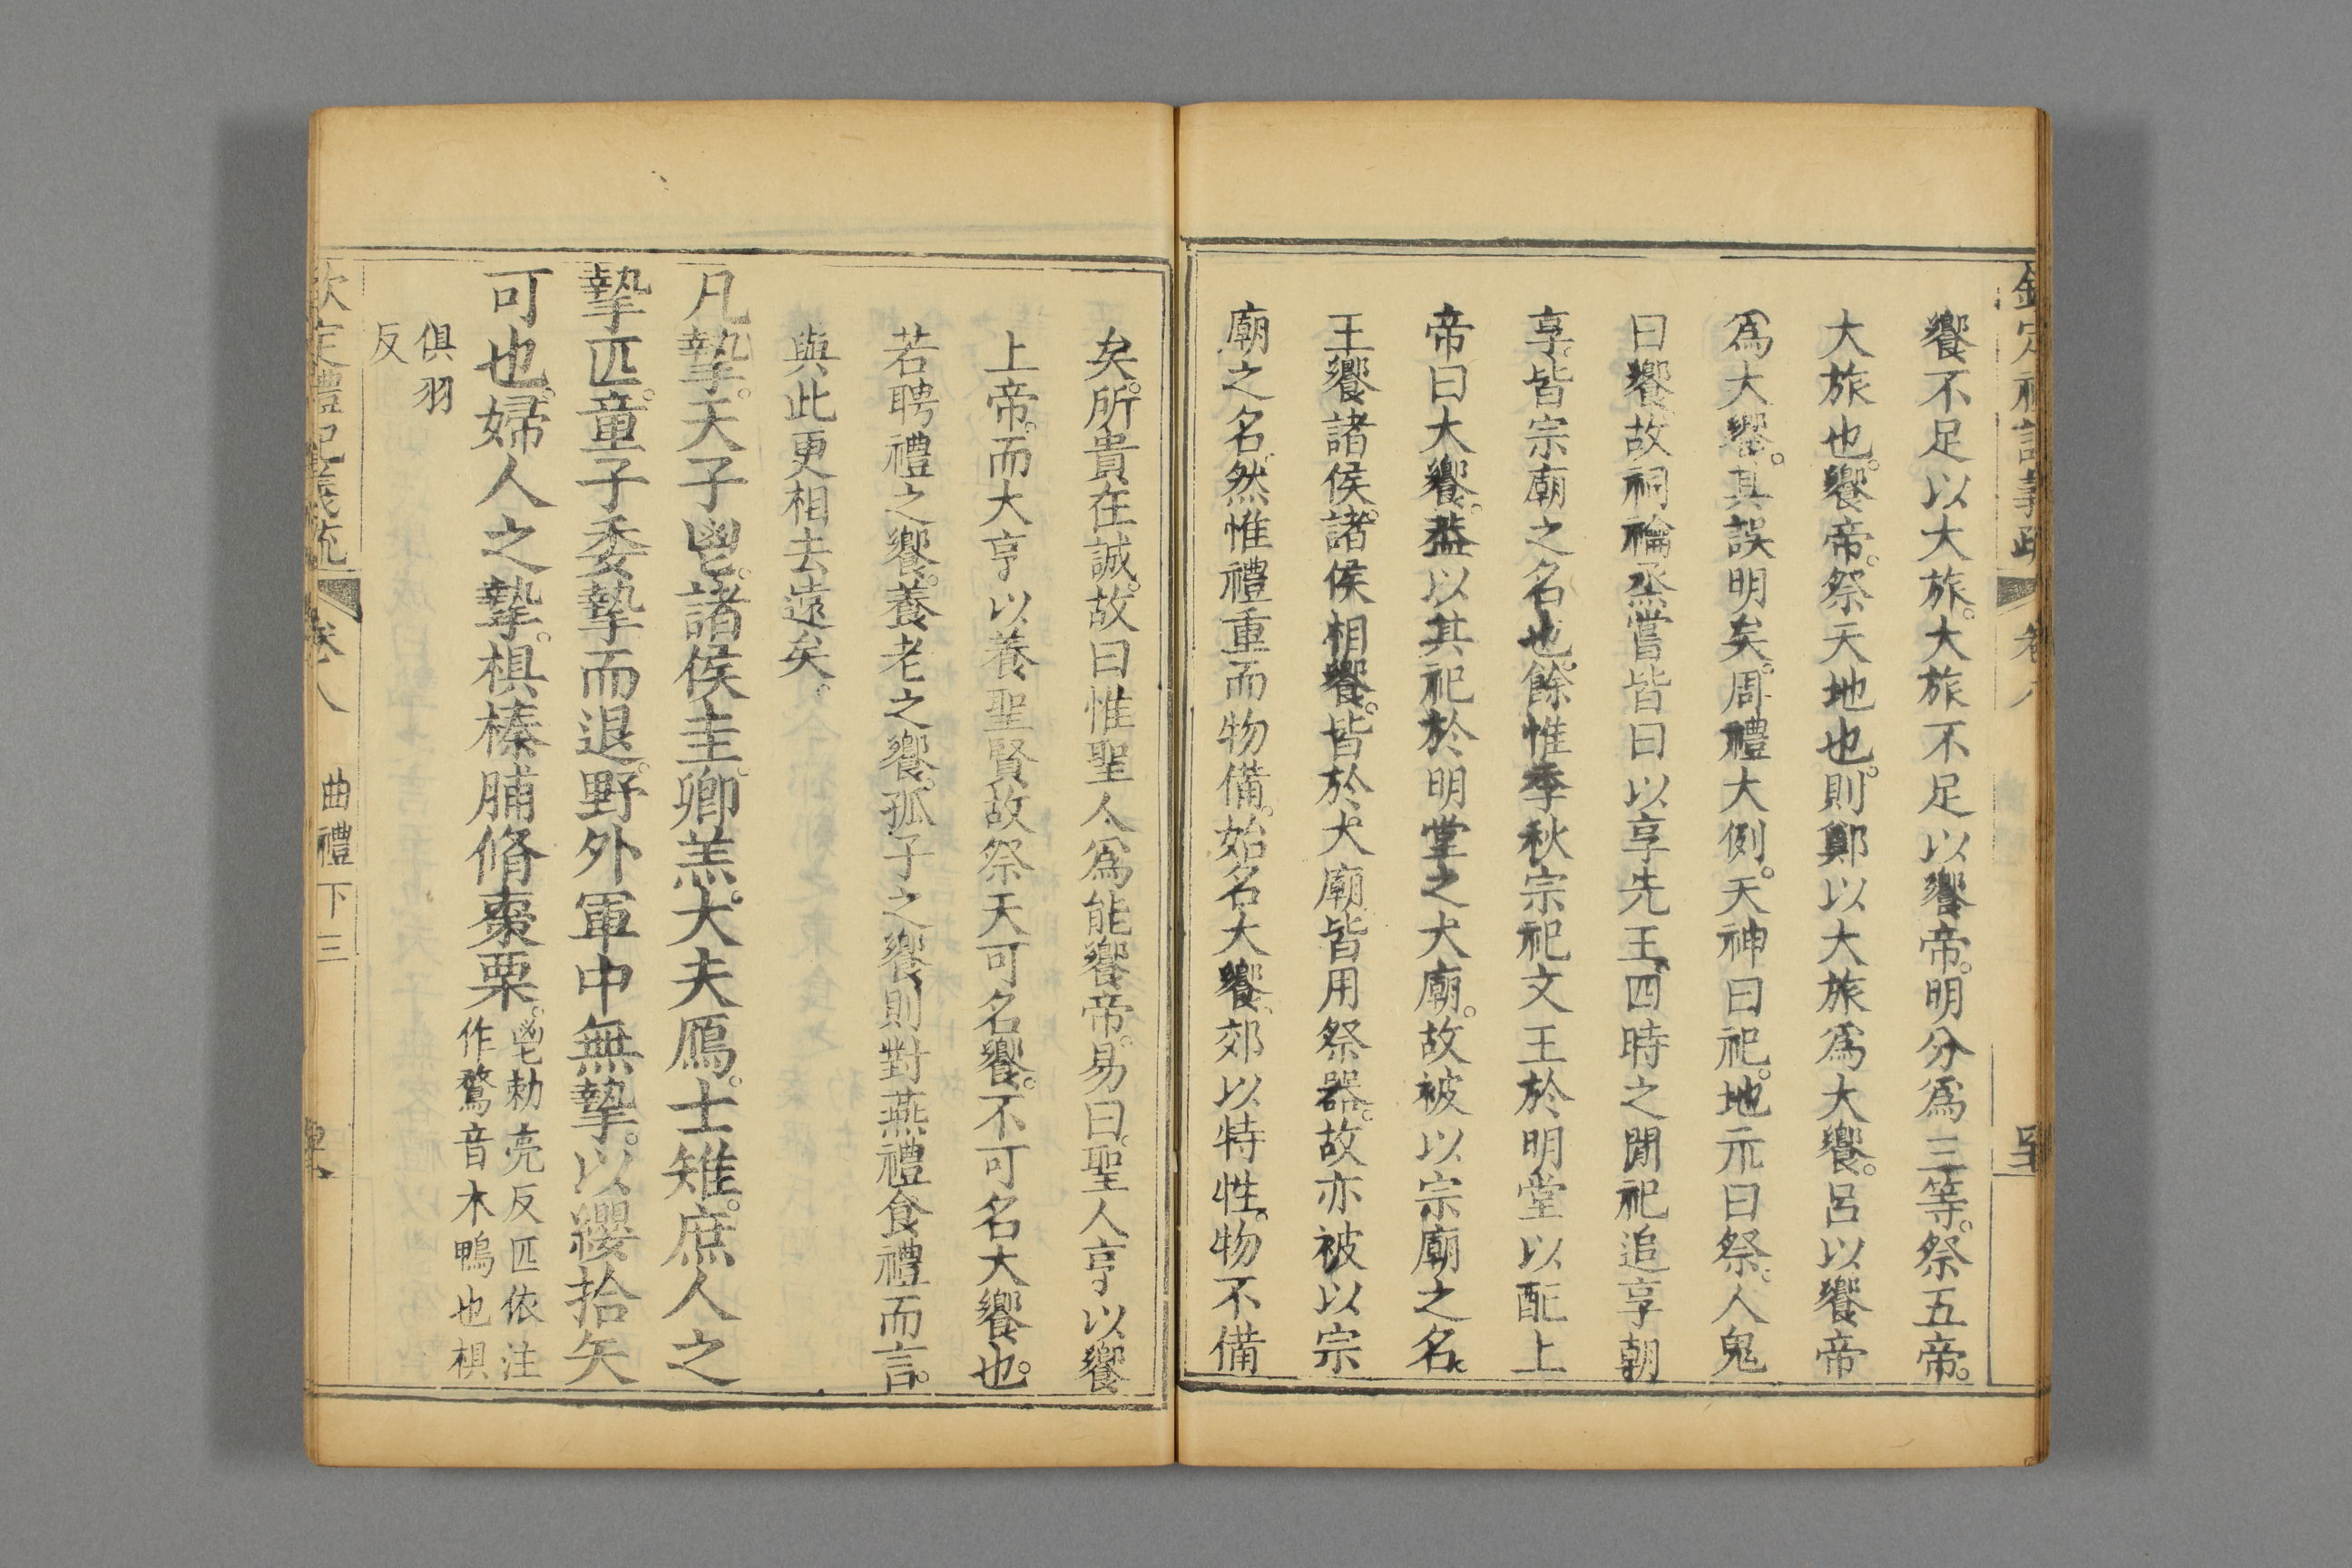 饗不足以大旅。大旅不足以饗帝。明分爲三等。祭五帝。
大旅也。饗帝。祭天地也。則鄭以大旅爲大饗。呂以饗帝
爲大饗。其誤明矣。周禮大例。天神曰祀。地示曰祭。人鬼
曰饗。故祠禴烝嘗皆曰以享先王。四時之閒祀追享朝
享。皆宗廟之名也。餘惟季秋宗祀文王於明堂以配上
帝曰大饗。蓋以其祀於明堂之大廟。故被以宗廟之名。
王饗諸侯。諸侯相饗。皆於大廟皆用祭器。故亦被以宗
廟之名。然惟禮重而物備。始名大饗。郊以特牲。物不備
矣。所貴在誠。故曰惟聖人爲能饗帝。易曰。聖人亨以饗
上帝。而大亨以養聖賢故祭天可名饗。不可名大饗也。
若聘禮之饗。養老之饗。孤子之饗則對燕禮食禮而言。
與此更相去遠矣。
凡摯。天子鬯。諸侯圭。卿羔。大夫鴈。士雉。庶人之
摯匹。童子委摯而退。野外軍中無摯。以纓拾矢
可也。婦人之摯。椇榛脯脩棗栗。
鬯勑亮反匹依注
作鶩音木鴨也椇
俱羽
反
欽定禮記義疏 卷八 曲禮下三